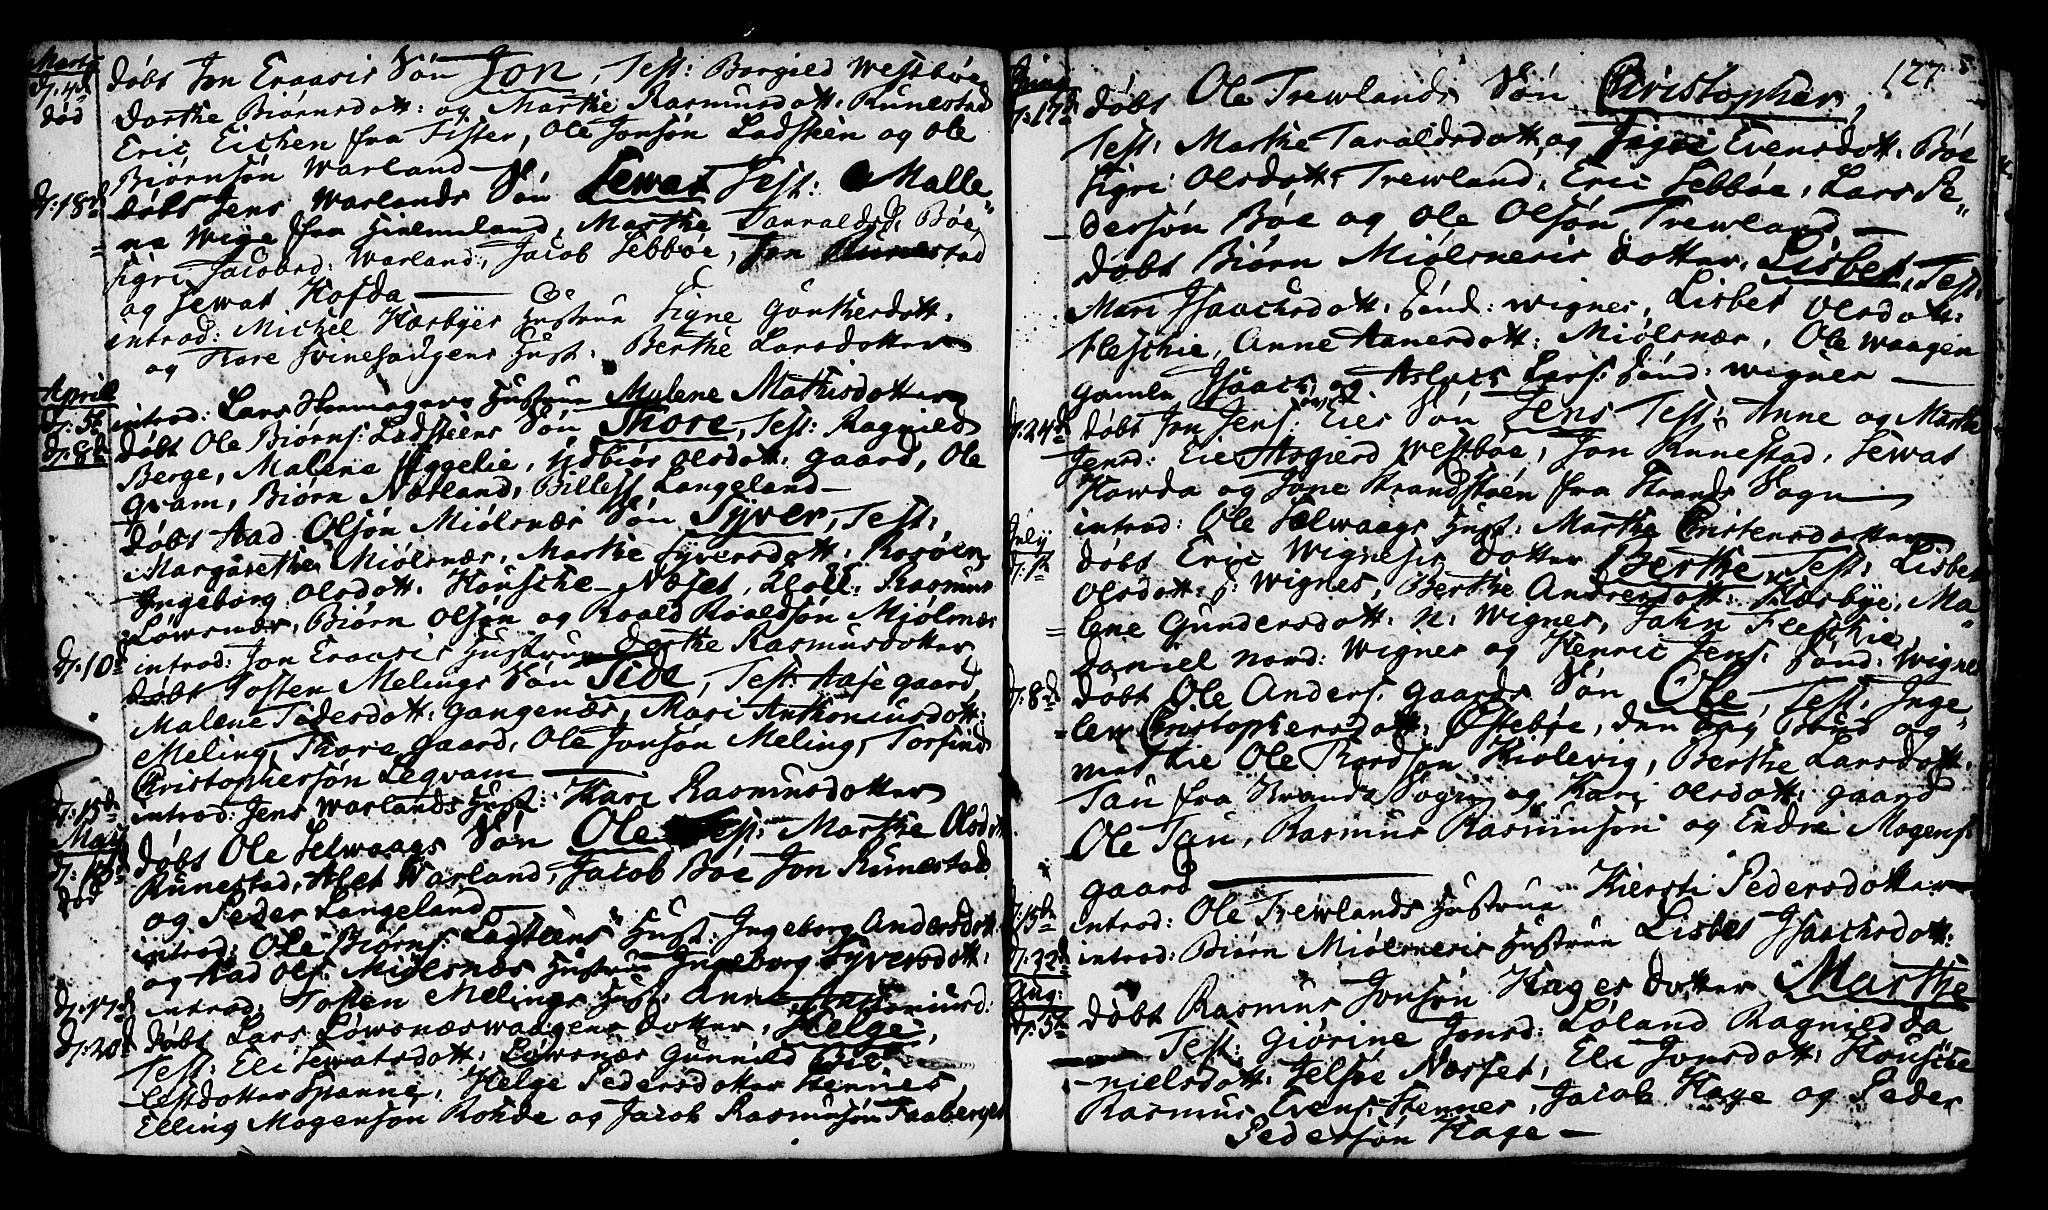 Marti
d. 4de døbt Jon Eraasis Søn Jon, Test: Borgild Westbøe
død Dorthe Biørnsdott: og Marthe Rasmusdott: Runestad
Eric Eichen fra Fister, Ole Jonsøn Ladsteen og Ole
Biørnsøn Warland
d. 18de døbt Jens Warlands Søn Sewat Test: Malle-
na Wige fra Hielmeland, Marthe Tarraldsd: Bøe
Sigri Jacobsd: Warland, Jacob Sebbøe, Jon Runestad
og Sewat Hofda
introd: Michel Hæsbyes Hustrue Signe Gunthersdott:
og Tore Svinehougens Hust: Berthe Larsdotter
Aprili
d. 5te introd: Lars Hustrue Malene Mathisdotter
d. 8de døbt Ole Biørns: Ladsteens Søn Thore, Test: Ragnild
Berge, Malena Olsdott: gaard, Ole
Qvam, Biørn Nærland, Billest Langeland
døbt Aad Olsøn Miølsnæs Søn Syver, Test:
Margarethe Miølsnæs, Marthe Syversdott: Rosøen
Ingeborg Olsdott: Housche-Næset, Rasmus
Lowsnæs, Biørn Olsøn og Roald Roaldsøn Miølsnæs
d. 10de introd: Jon Eraasis Hustrue Berthe Rasmusdotter
døbt Tosten Melings Søn Tide, Test: Aase gaard,
Malene Tidersdott: gangenæs, Mari Anthoniusdott:
Meling, Thore gaard, Ole Jonsøn Meling, Torfind
Christophersøn Leqvam
d. 15de introd: Jens Warlands Hust: Kari Rasmusdotter
Maij
d. 13de døbt Ole Selwaags Søn Ole Test: Marthe Olsdott
død Runestad, Warland, Jacob Bøe Jon Runestad
og Peder Langeland
introd: Ole Biørns: Ladsteens Hust: Ingeborg Andersdott:
og Aad Ols: Miølsnæs Hustrue Ingeborg Syversdott:
d. 17de introd: Tosten Melings Hust: Anne Anthoniusd:
d. 20de døbt Lars Løwsnæswaagens Dotter, Helge,
Test: Eli Sewatsdott: Løwsnæs Gunnild Bil-
lestdotter Spanne, Helge Pedersdotter Hennes
Elling Mogensøn Rohde og Jacob Rasmusøn Faaberget
127
Junij
d. 17de døbt Ole Trewlands Søn Christopher,
Test: Marthe Taraldsdott og Sigri Evensdott: Bøe
Sigri Olsdott: Trewland, Eric Sebbøe, Lars Pe-
dersøn Bøe og Ole Olsøn Trewland
døbt Biørn Miølsnesis Dotter, Lisbet, Test:
Mari Isaachsdott: Sønd: Wignes, Lisbet Olsdott:
Fleschie, Anne Aanersdott: Miølsnæs, Ole Waagen
gamle Isaach og Aslach Lars: Sønd: Wignes
d. 24de døbt Jon Jens: Eies Søn Jens Test: Anne og Marthe
Jensd: Eie Asgierd Westbøe, Jon Runestad, Sewat
Howda og Jone Strandstøen fra Strands Sogn
introd: Ole Selwaags Hust: Marthe Cristensdotter
July
d. 1te døbt Eric Wignesis Dotter Berthe, Test: Lisbet
Olsdott: Wignes, Berthe Andersdott: Hæsbye, Ma-
lene Gundersdott: N: Wignes, John Fleschie,
Daniel nord: Wignes og Henric Jens: Sønd: Wignes
d. 8de døbt Ole Anders: gaards Søn Ole, Test: Inge-
lew Christophersdott: Østebøe, den og
Ole Kiolevig, Berthe Larsdott:
Tau fra Strands Sogn og Kari Olsdott: gaard
Ole Tau, Rasmus Rasmusøn og Endre Mogens:
gaard
d. 15de introd: Ole Trewlands Hustrue Kiersti Pedersdotter
d. 22de introd: Biørn Miølsnesis Hustrue Lisbet Isaachsdott:
Aug:
d. 5te døbt Rasmus Jonsøn Hages Dotter Marthe
Test: Giørine Jonsd: Løland Ragnild Da
nielsdott: Jelsøe Næsset, Eli Jonsdott: Housche
Rasmus Evens: Hennes, Jacob Hage og Peder
Pedersøn Hage